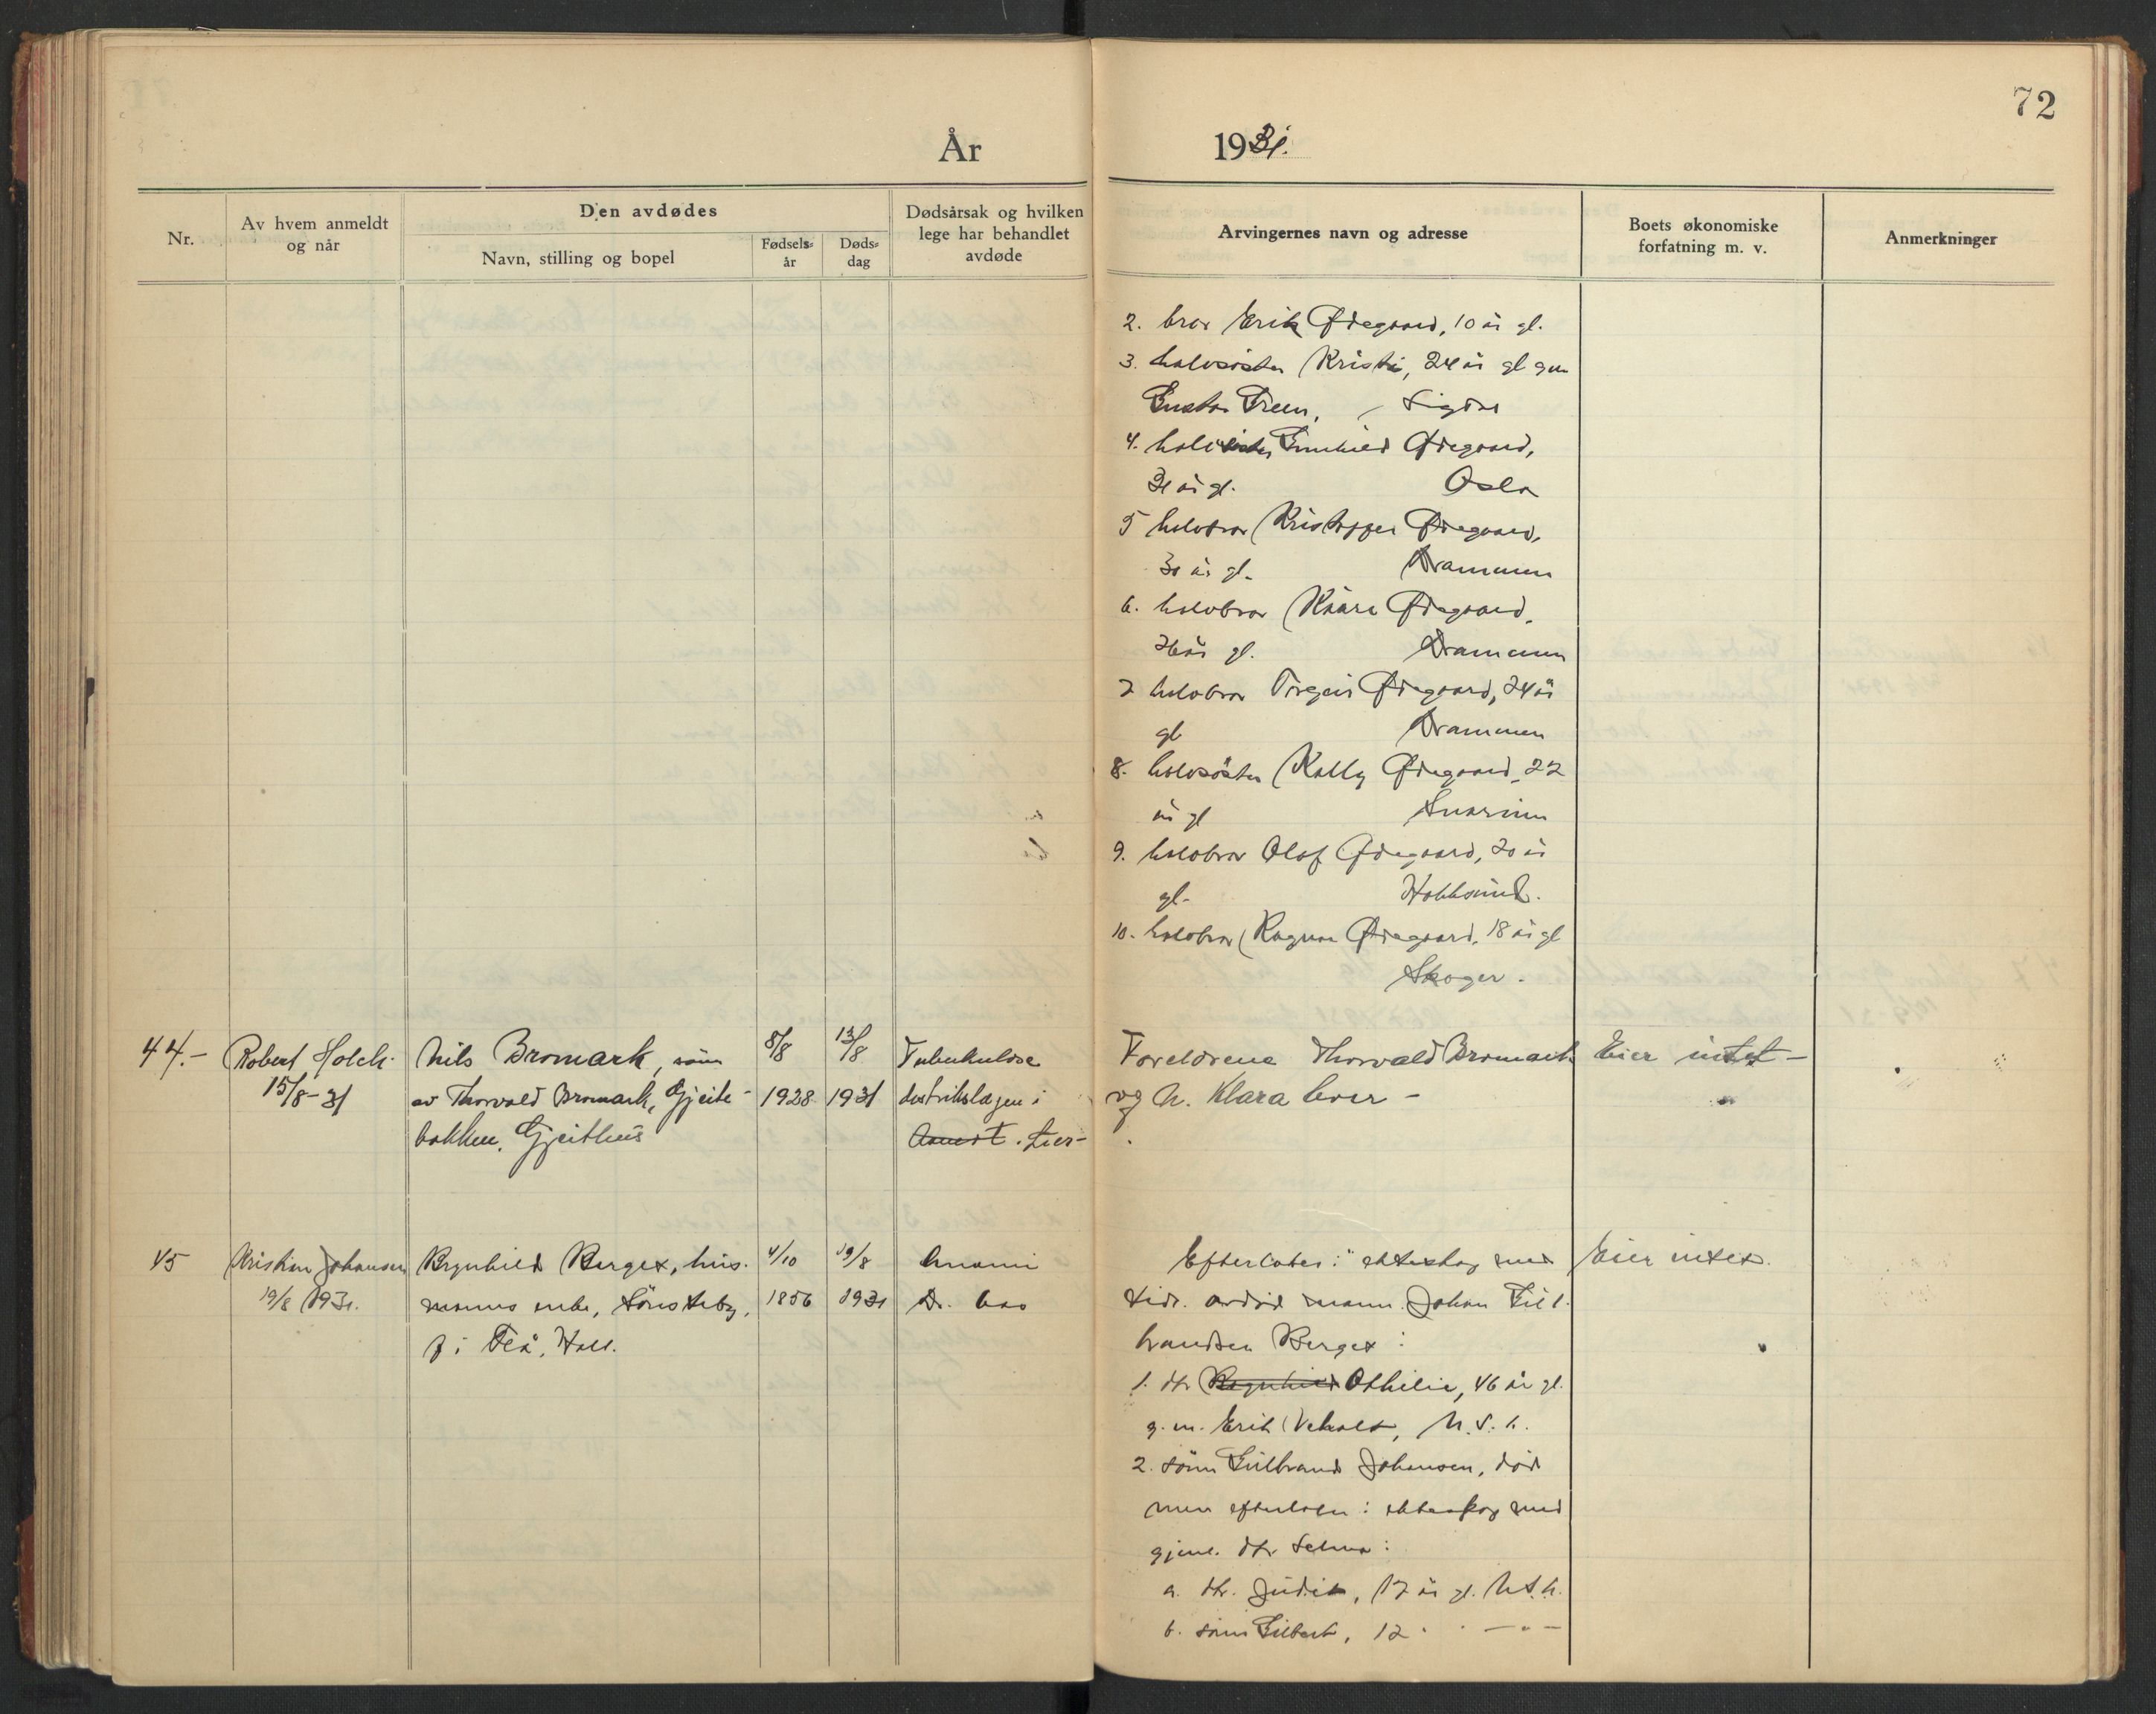 72
År 1931.
Nr.
Av hvem anmeldt
og når
Den avdødes
Navn, stilling og bopel
Fødsels-
år
Døds-
dag
Dødsårsak og hvilken
lege har behandlet
avdøde
Arvingernes navn og adresse
Boets økonomiske
forfatning m. v.
Anmerkninger
2. bror Erik Ødegaard, 10 år gl.
3. halvsøster Kristi, 24 år gl gm
Gustav Sigdal
4. Gunhild Ødegaard,
31 år gl. Oslo
5 halvbror Kristoffer Ødegaard,
30 år gl. Drammen
6. halvbror Kåare Ødegaard,
26 år gl. Drammen
7 halvbror Torgeir Ødegaard, 24 år
gl Drammen
8. halvsöster Kally Ødegaard, 22
år gl Snarum
9. halvbror Olaf Ødegaard, 20 år
gl. Hokksund.
10. halvbror Ragnar Ødegaard, 18 år gl
Skoger.
44.- Robert Holch
15/8-31
Nils Bromark, sönn
av Thorvald Bromark, Gjeite-
bakken, Gjeithus
8/8
1928
13/8
1931
Tuberkulose
distriktslægen i
Lier-
Foreldrene Thorvald Bromark
og h. Klara lever -
Eier intet -
45 Kristian Johansen
19/8 1931.
Brynhild Berget, hus-
manns enke, Sönsteby,
f i Flå, Hall.
4/10
1856
19/8
1931
Anæmi
Dr.
Efterlater i ekteskap med
tidl. avdød mann Johan Gul-
brandsen Berget:
1. dtr Ragnhild Othilie, 46 år gl.
g.m. Erik Veholt, h.s.h.
2. sönn Gulbrand Johansen, død
men efterlater i ekteskap med
gjenl. dtr. Selma:
a. dtr. Judit, 17 år gl. h.s.h.
b. sönn Gilbert, 12 " " — " —
Eier intet.